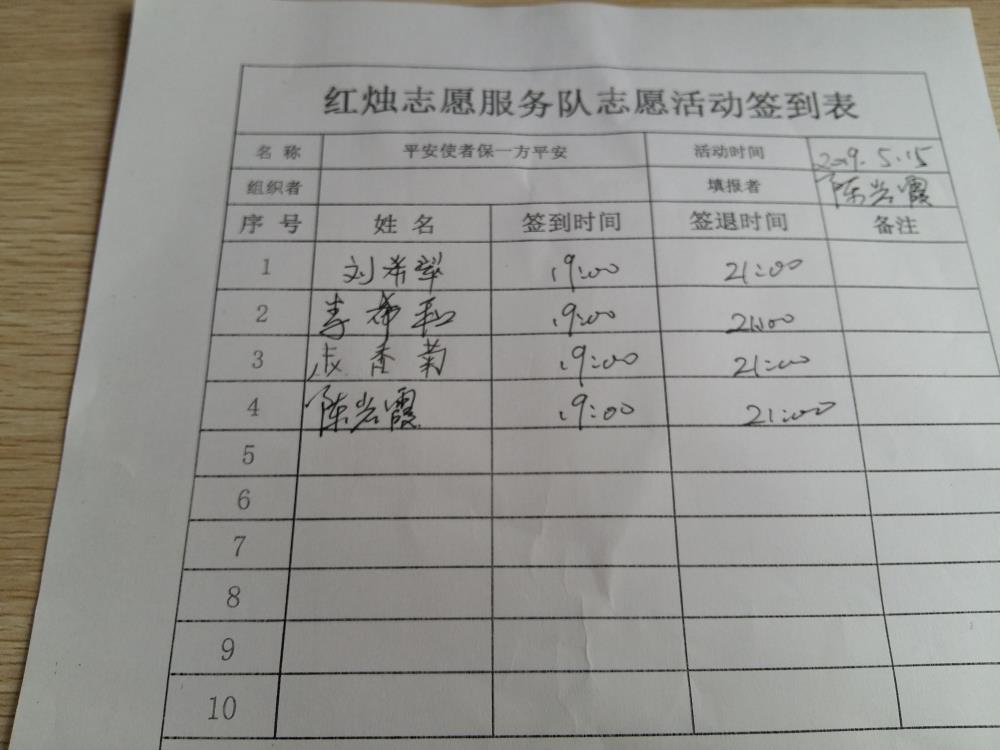 红烛志愿服务队志愿活动签到表
名 称 平安使者保一方平安 活动时间 2019.5.15
组织者 填报者 陈岩霞
序 号 姓 名 签到时间 签退时间 备注
1 刘希翠 19:00 21:00
2 李希和 19:00 21:00
3 成香菊 19:00 21:00
4 陈岩霞 19:00 21:00
5
6
7
8
9
10